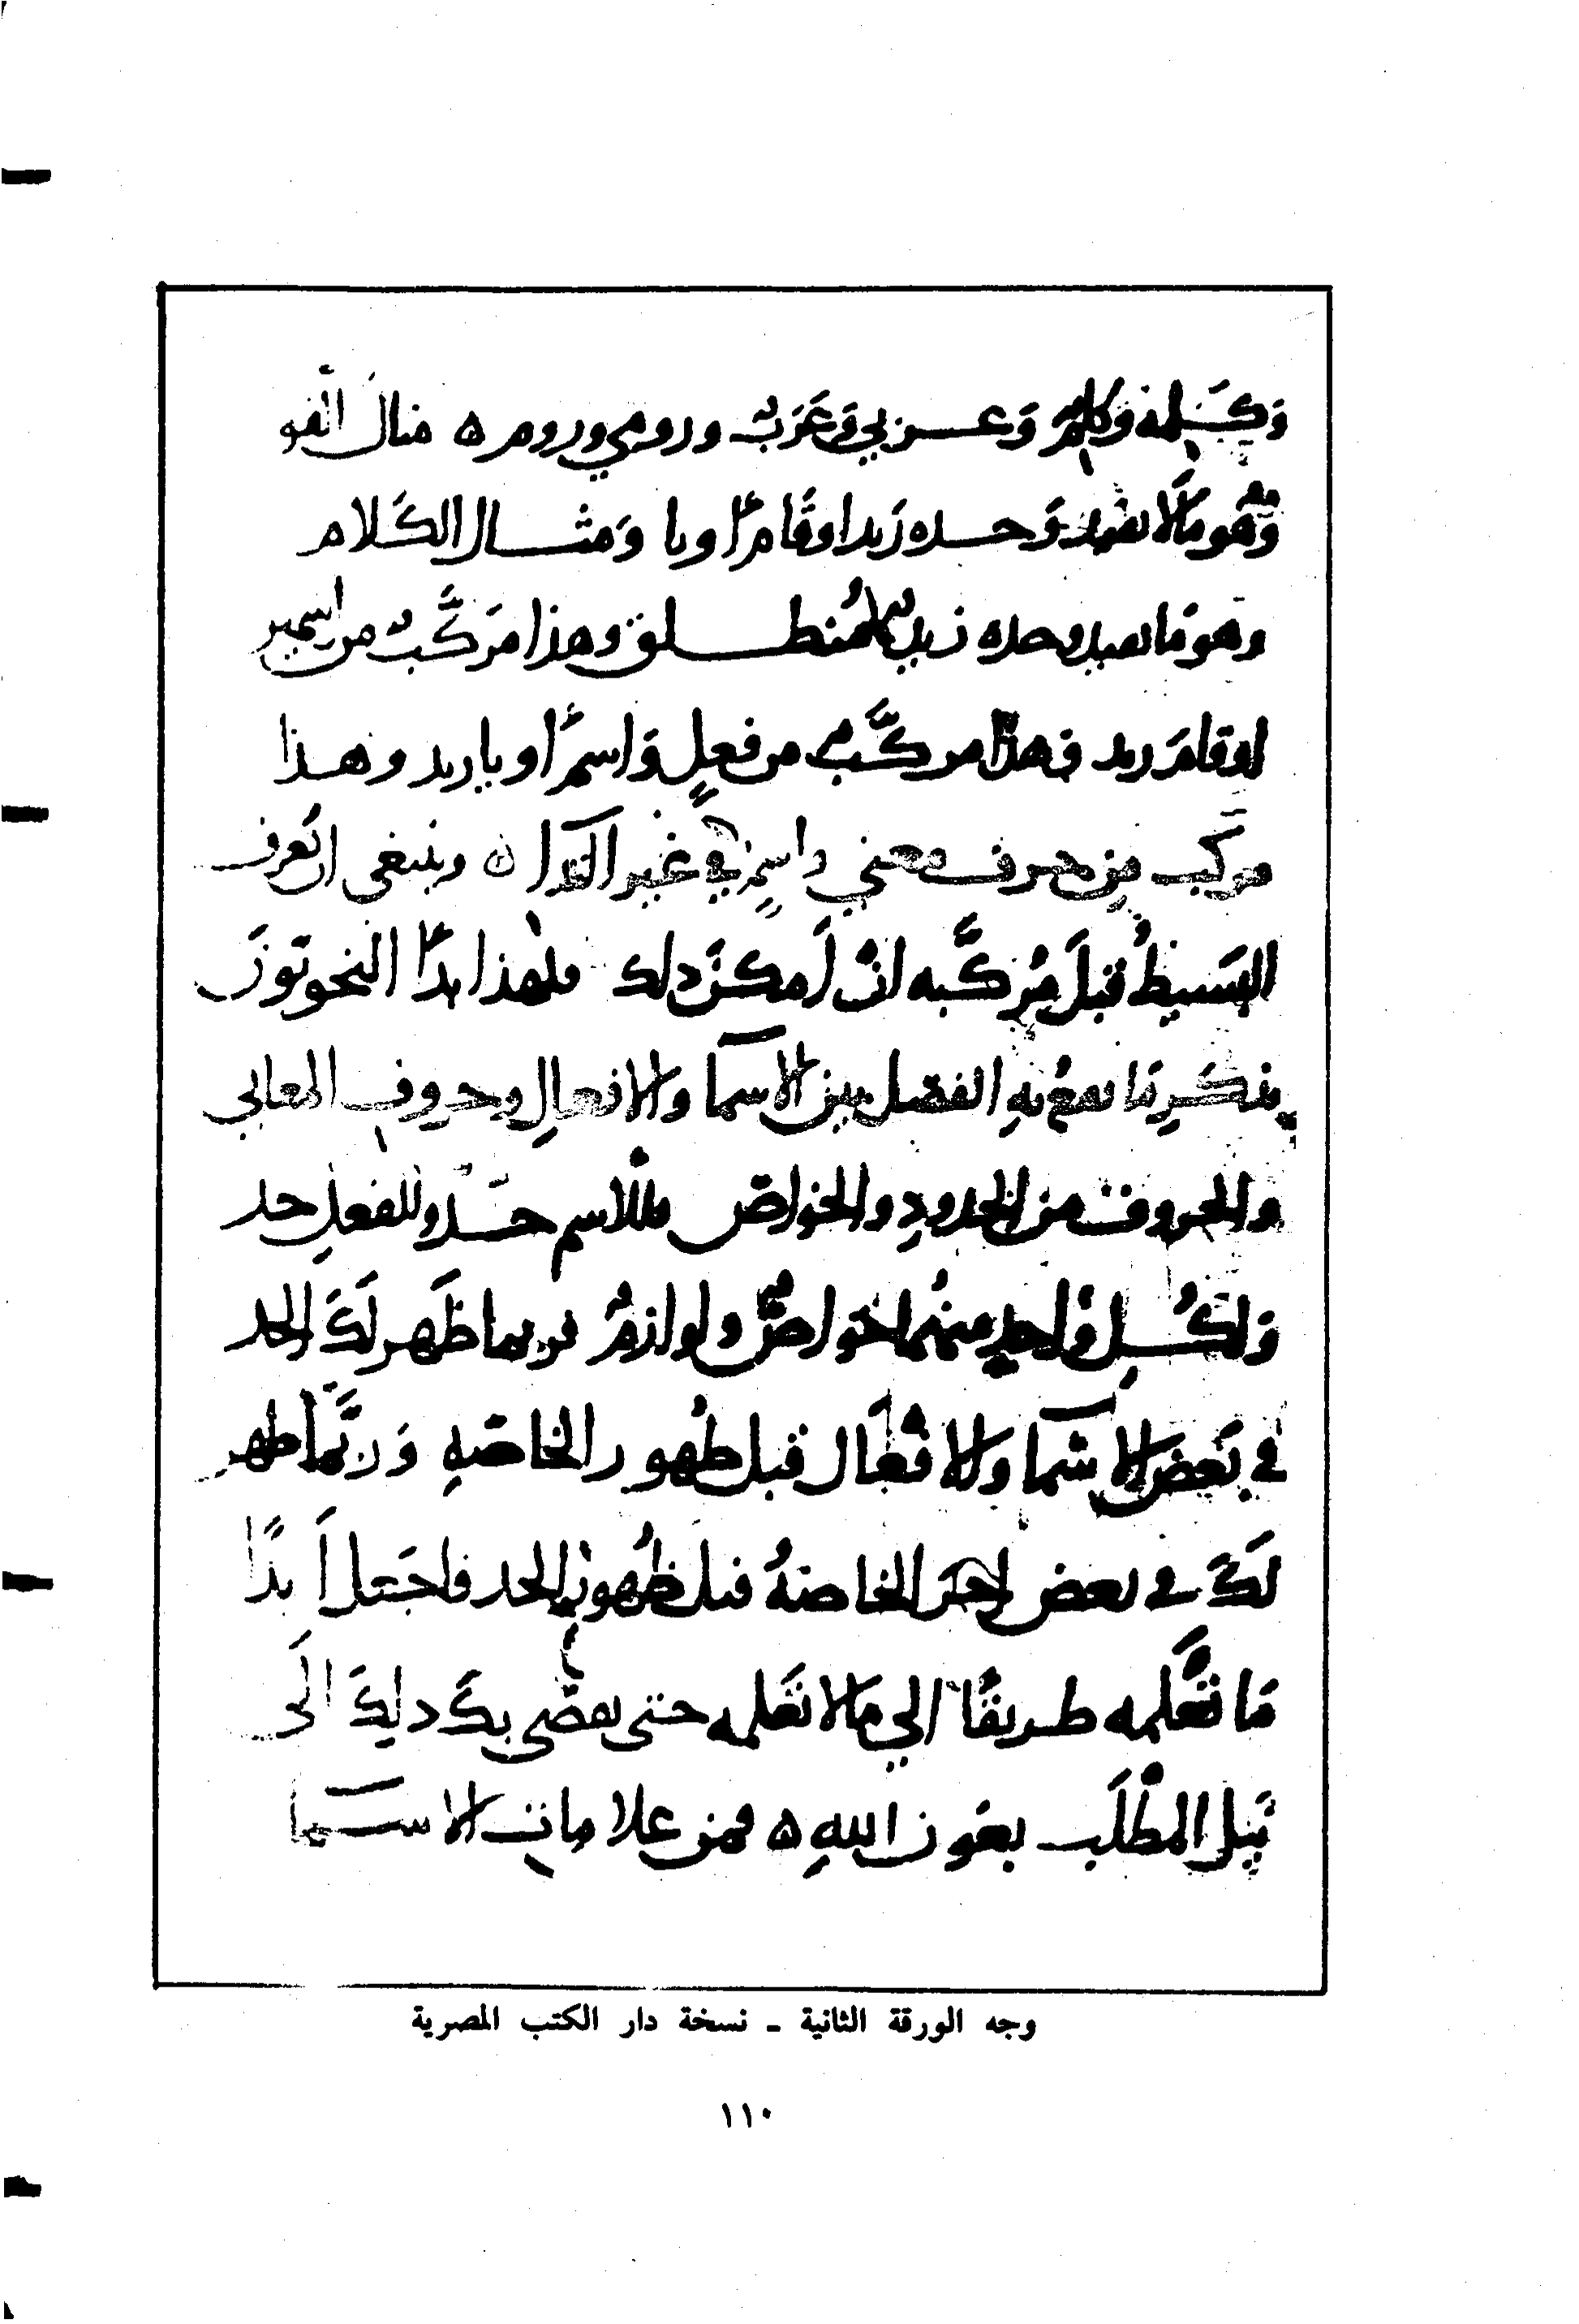 وَكَلِمة وكلِمٌ وَعربي وَعَرَب ورومي وروم ٥ مثال القو
وَهُو مَالا يفيد وَحده زَيد او قَامَ او يا وَمثال الكَلام
وهوَ مَا يفيد وحده زيدٌ مُنطلق وهذا مَركَّب من اسمين
او قامَ زيد فهذا مركَّب من فعلٍ وَاسمٍ او يا زيد وهذا
مركّب من حرف معنى واسمٍ في غير الندآ ٥ وينبغي ان تعرف
البَسيط قبلَ مُركَّبه ان امكنَ ذلك فلهذا بدأ النحويّونَ
بذكر مَا يقعُ بهِ الفصل بين الاسمآ والافعالِ وحروفِ المعاني
والحروف من الحدودِ والخواصّ فللاسم حَدّ وللفعلِ حد
وَلكُلِ وَاحدٍ منهُما خوَاصٌّ ولوازمُ فربما ظَهر لَكَ الحد
في بَعض الاسمآ والافعَال قبل ظُهور الخاصّةِ وَربَّما ظهر
لَكَ في بعض الخاصةُ قبل ظُهورِ الحد فاجعَل اَبدًا
مَا تَعلمه طريقًا الي مَالا تعلمه حتى يفضى بكَ ذلِكَ الَى
نَيل المطلَب بعَون اللهِ ٥ فمن علامات الاسمآ
وجه الورقة الثانية ـ نسخة دار الكتب المصرية
١١٠